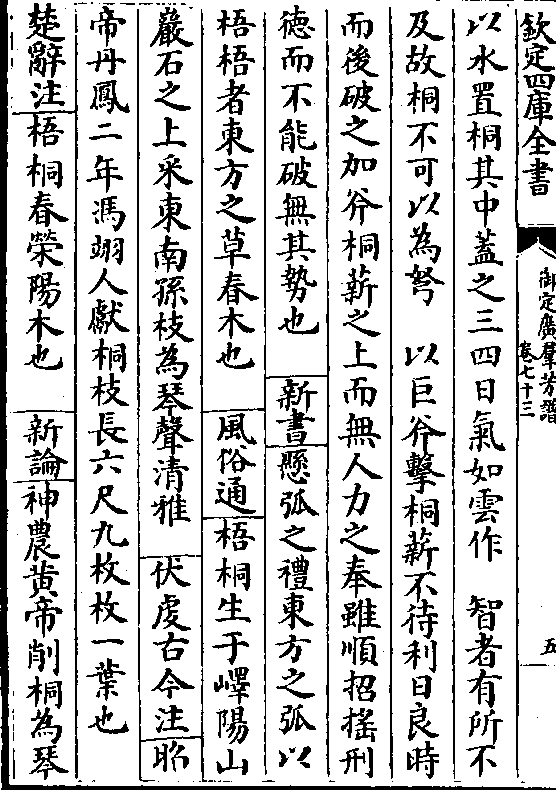 欽定四庫全書
御定廣羣芳譜
卷七十三
五
以水置桐其中蓋之三四日氣如雲作　智者有所不
及故桐不可以為弩　以巨斧擊桐薪不待利日良時
而後破之加斧桐薪之上而無人力之奉雖順招搖刑
徳而不能破無其勢也　新書懸弧之禮東方之弧以
梧梧者東方之草春木也　風俗通梧桐生于嶧陽山
巖石之上采東南孫枝為琴聲清雅　伏䖍古今注昭
帝丹鳳二年馮翊人獻桐枝長六尺九枚枚一葉也
楚辭注梧桐春榮陽木也　新論神農黄帝削桐為琴